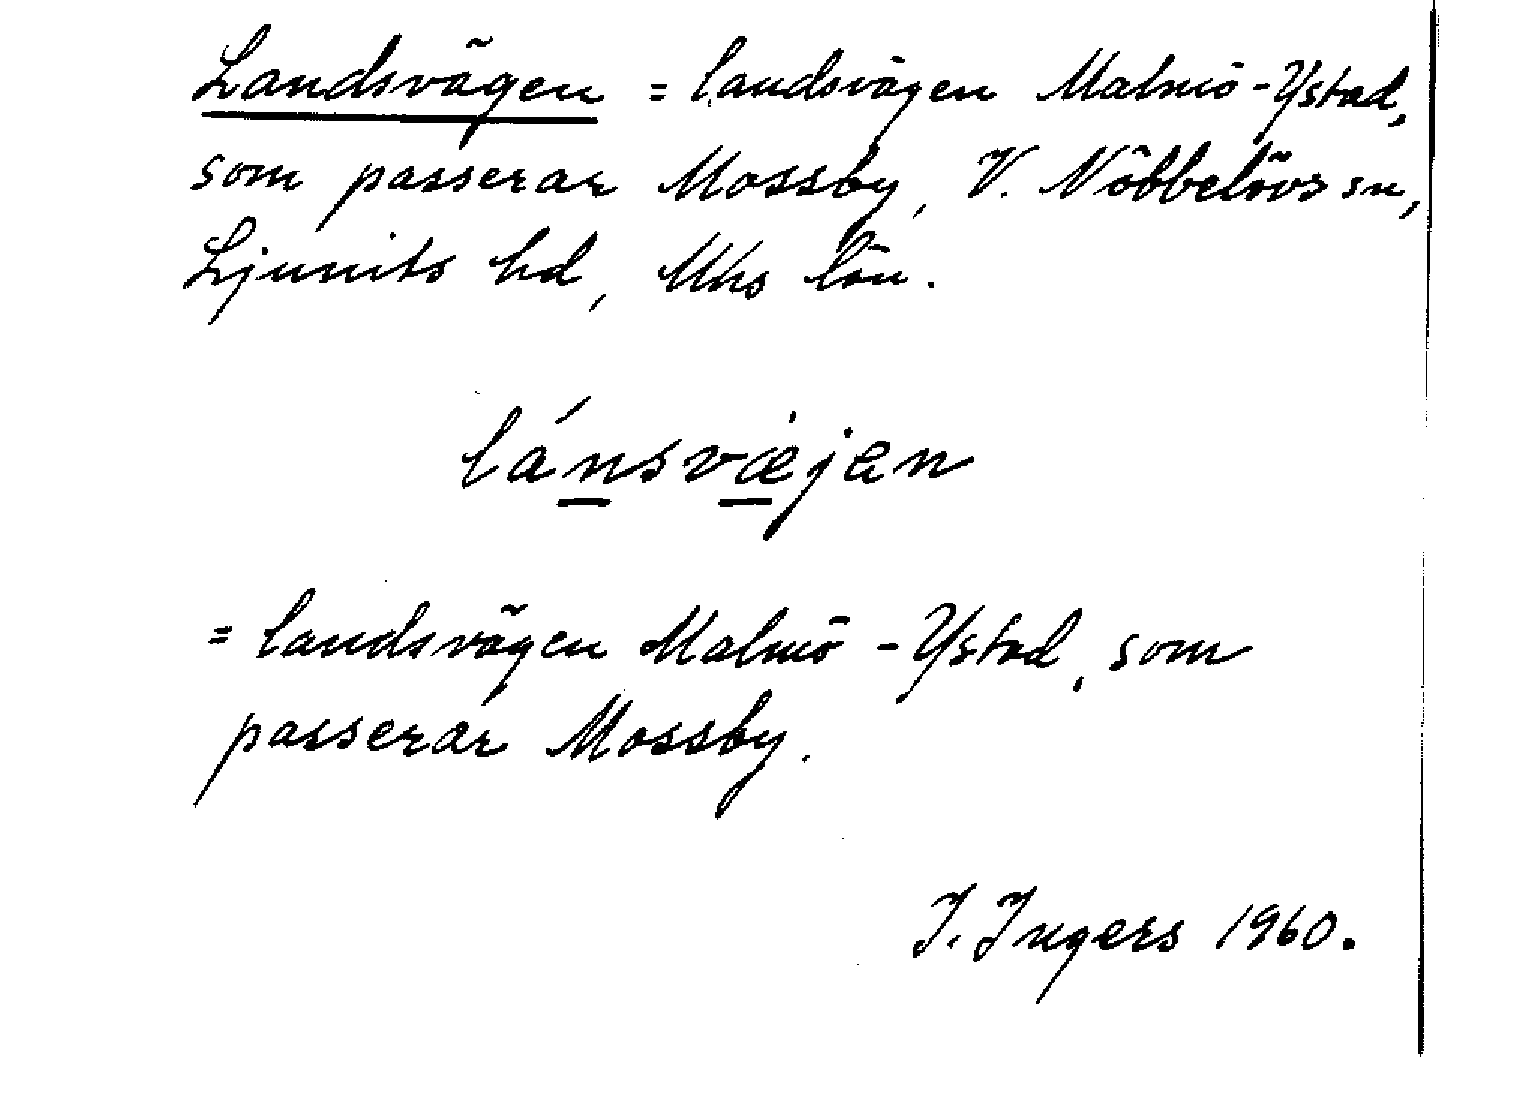 Landsvägen = landsvägen Malmö-Ystad,
som passerar Mossby, V. Nöbbelövs sn,
Ljunits hd, Mhs län.
lánsvæ̀jen
= landsvägen Malmö-Ystad, som
passerar Mossby.
I. Ingers 1960.